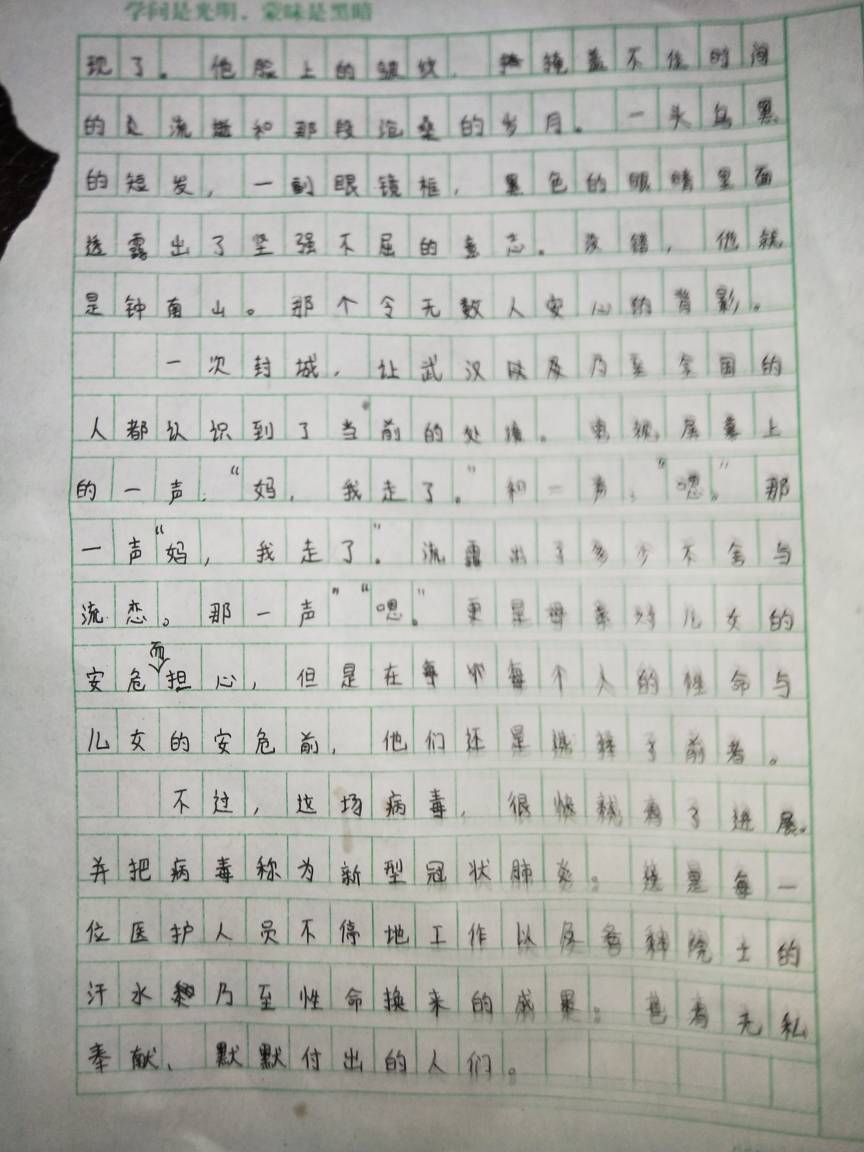 学问是光明，蒙昧是黑暗
现了。他脸上的皱纹，掩盖不住时间
的流逝和那段沧桑的岁月。一头乌黑
的短发，一副眼镜框，黑色的眼睛里面
透露出了坚强不屈的意志。没错，他就
是钟南山。那个令无数人安心的背影。
一次封城，让武汉以及乃至全国的
人都认识到了当前的处境。电视屏幕上
的一声：“妈，我走了。”和一声：“嗯。”那
一声“妈，我走了”。流露出了多少不舍与
流恋。那一声”“嗯。”更是母亲对儿女的
安危而担心，但是在每个人的性命与
儿女的安危前，他们还是选择了前者。
不过，这场病毒，很快就有了进展。
并把病毒称为新型冠状肺炎。这是每一
位医护人员不停地工作以及各科院士的
汗水乃至性命换来的成果。也有无私
奉献、默默付出的人们。